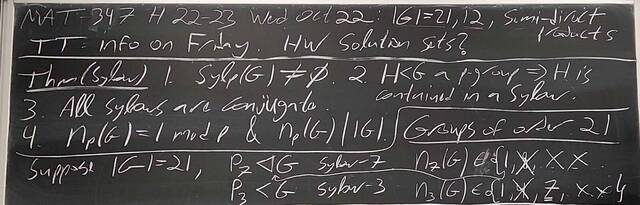 MAT-347 H 22-23 Wed Oct 22: |G|=21, 12, Semi-direct products
TT-info on Friday. HW Solution sets?
Thm (Sylow) 1. Sylp(G) ≠ ∅. 2. H<G a p-group ⇒ H is contained in a Sylow.
3. All sylows are conjugate.
4. n_p(G) = 1 mod p & n_p(G) | |G|.
Groups of order 21
Suppose |G|=21, P_7 ◁ G sylow-7 n_7(G) ∈ {1, X X X
P_3 < G sylow-3 n_3(G) ∈ {1, X, 7, X X}